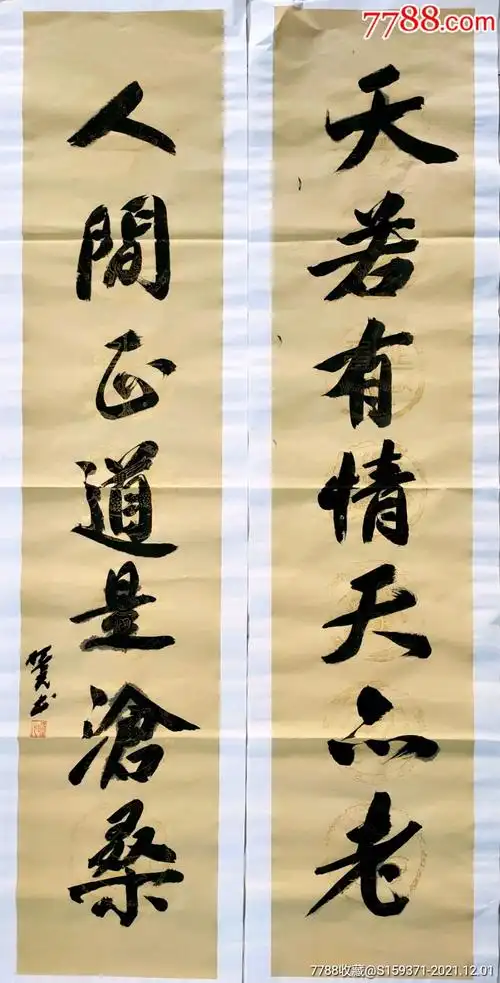 7788.com
天若有情天亦老
人間正道是滄桑
7788收藏@S159371-2021.12.01